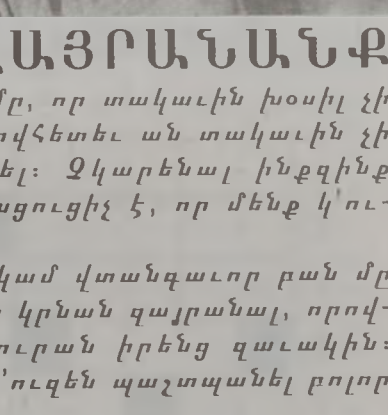 ԱՅՐԱՆԱՆՔ
մը, որ տակաւին խօսիլ չի
ովհետեւ ան տակաւին չի
ել։ Չկարենալ ինքզինք
ացուցիչ է, որ մենք կ՚ու-
կամ վտանգաւոր բան մը
կրնան զայրանալ, որով-
ուրան իրենց զաւակին։
՚ուզեն պաշտպանել բոլոր